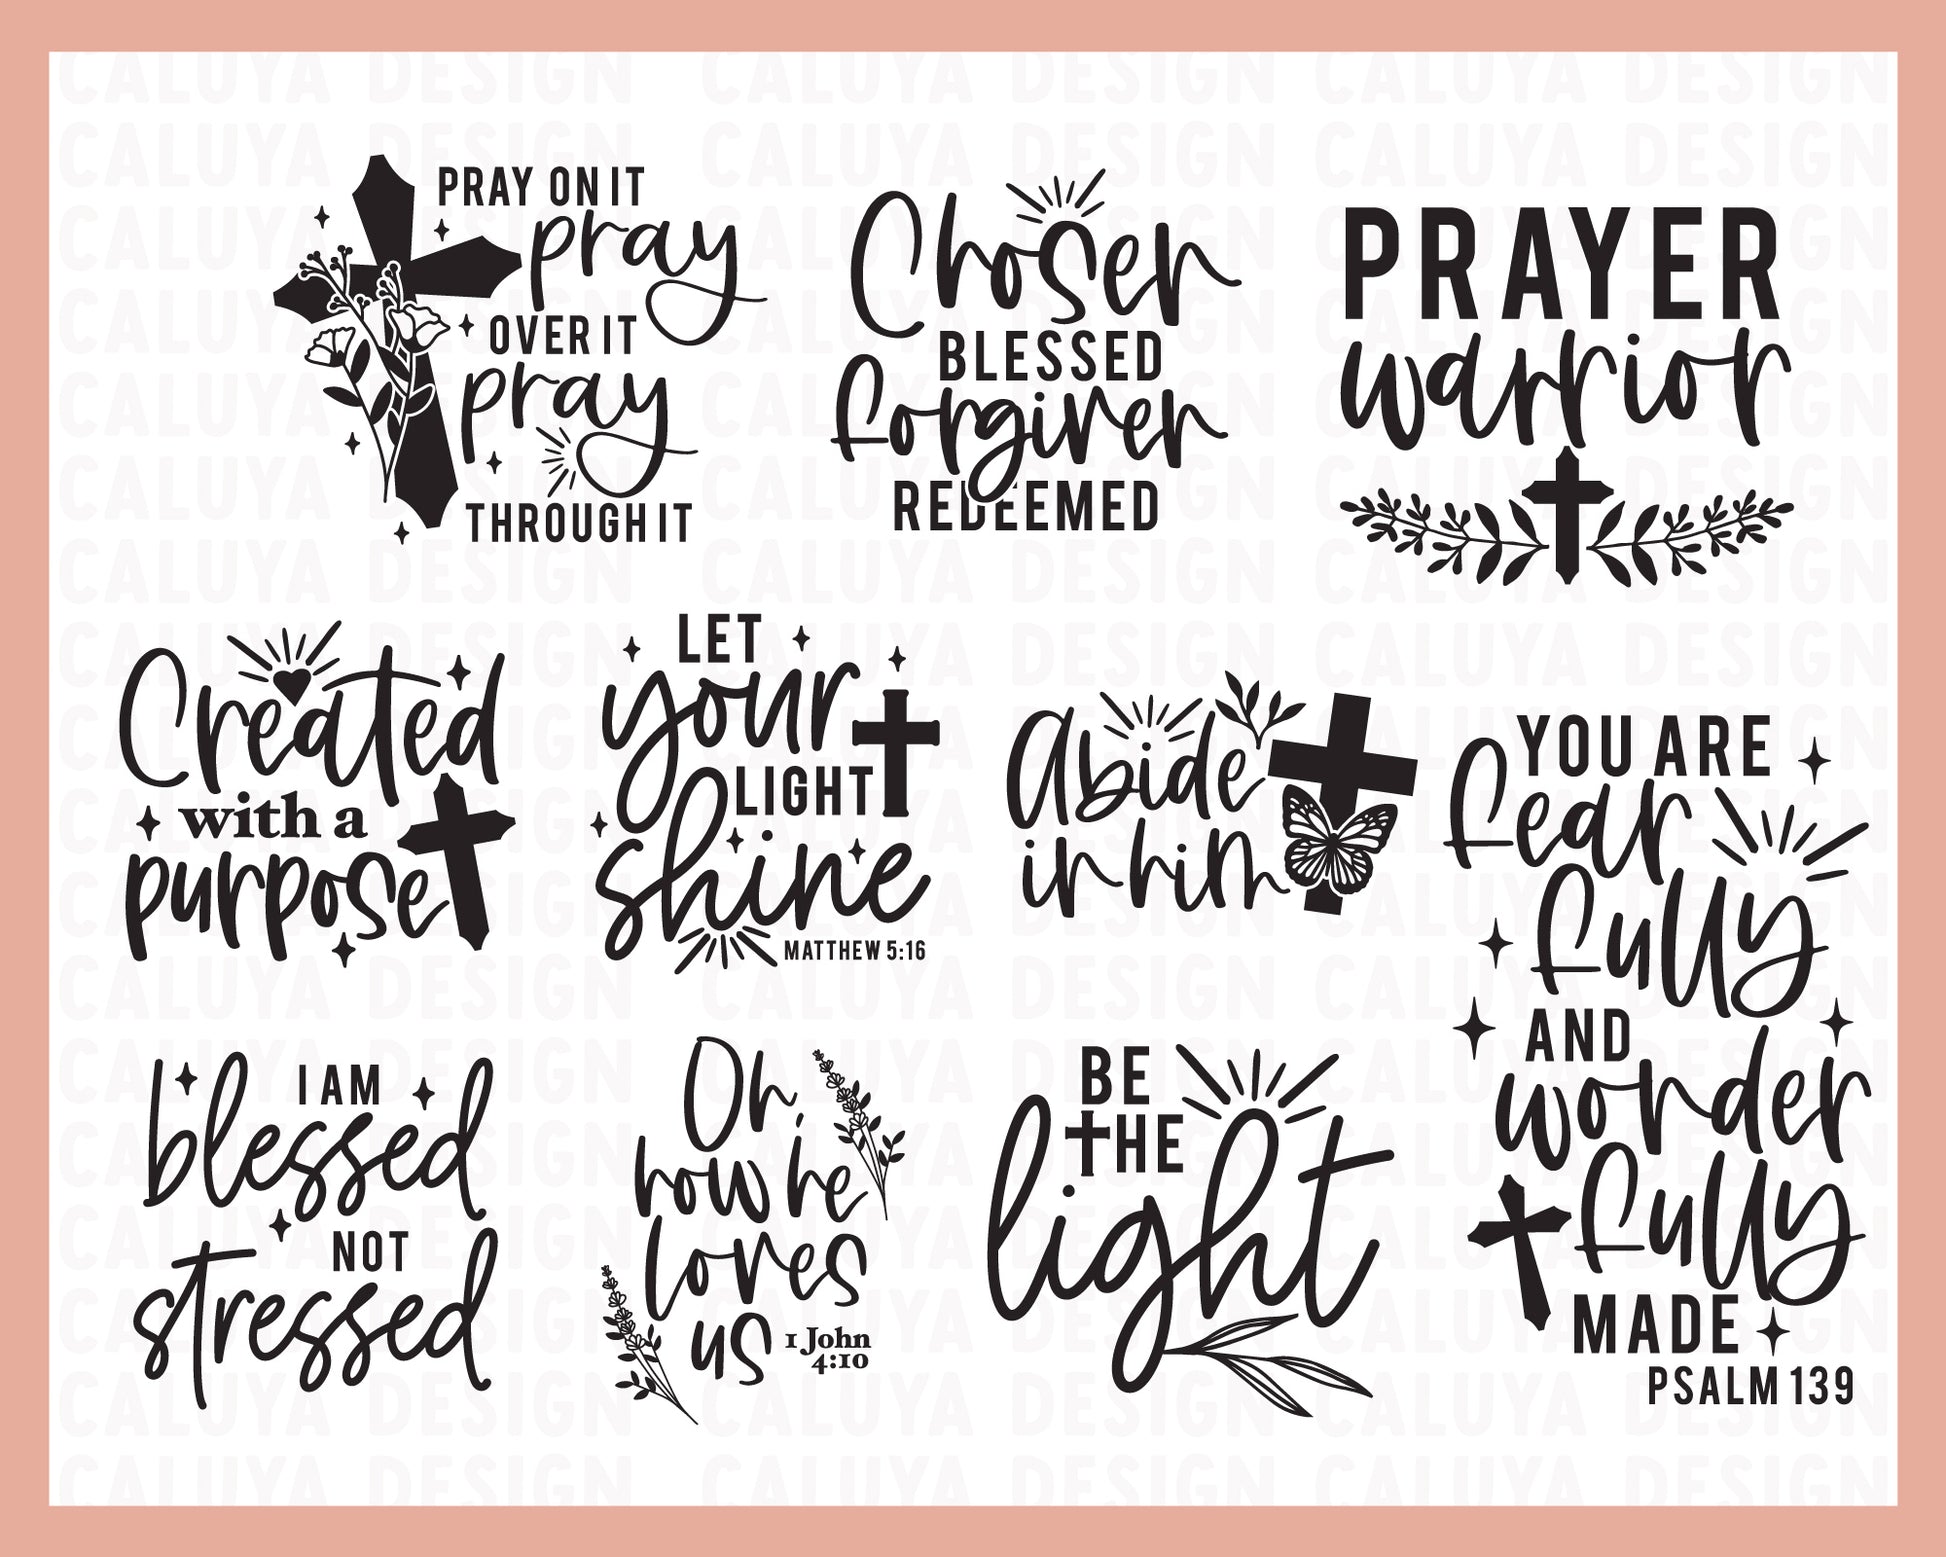 PRAY ON IT
pray
OVER IT
pray
THROUGH IT
Chosen
BLESSED
forgiven
REDEEMED
PRAYER
warrior
Created
with a
purpose
LET
your
LIGHT
shine
MATTHEW 5:16
Abide
in him
YOU ARE
fear
fully
AND
wonder
fully
MADE
PSALM 139
I AM
blessed
NOT
stressed
Oh,
how he
loves
us
1 John
4:10
BE
THE
light
CALUYA DESIGN